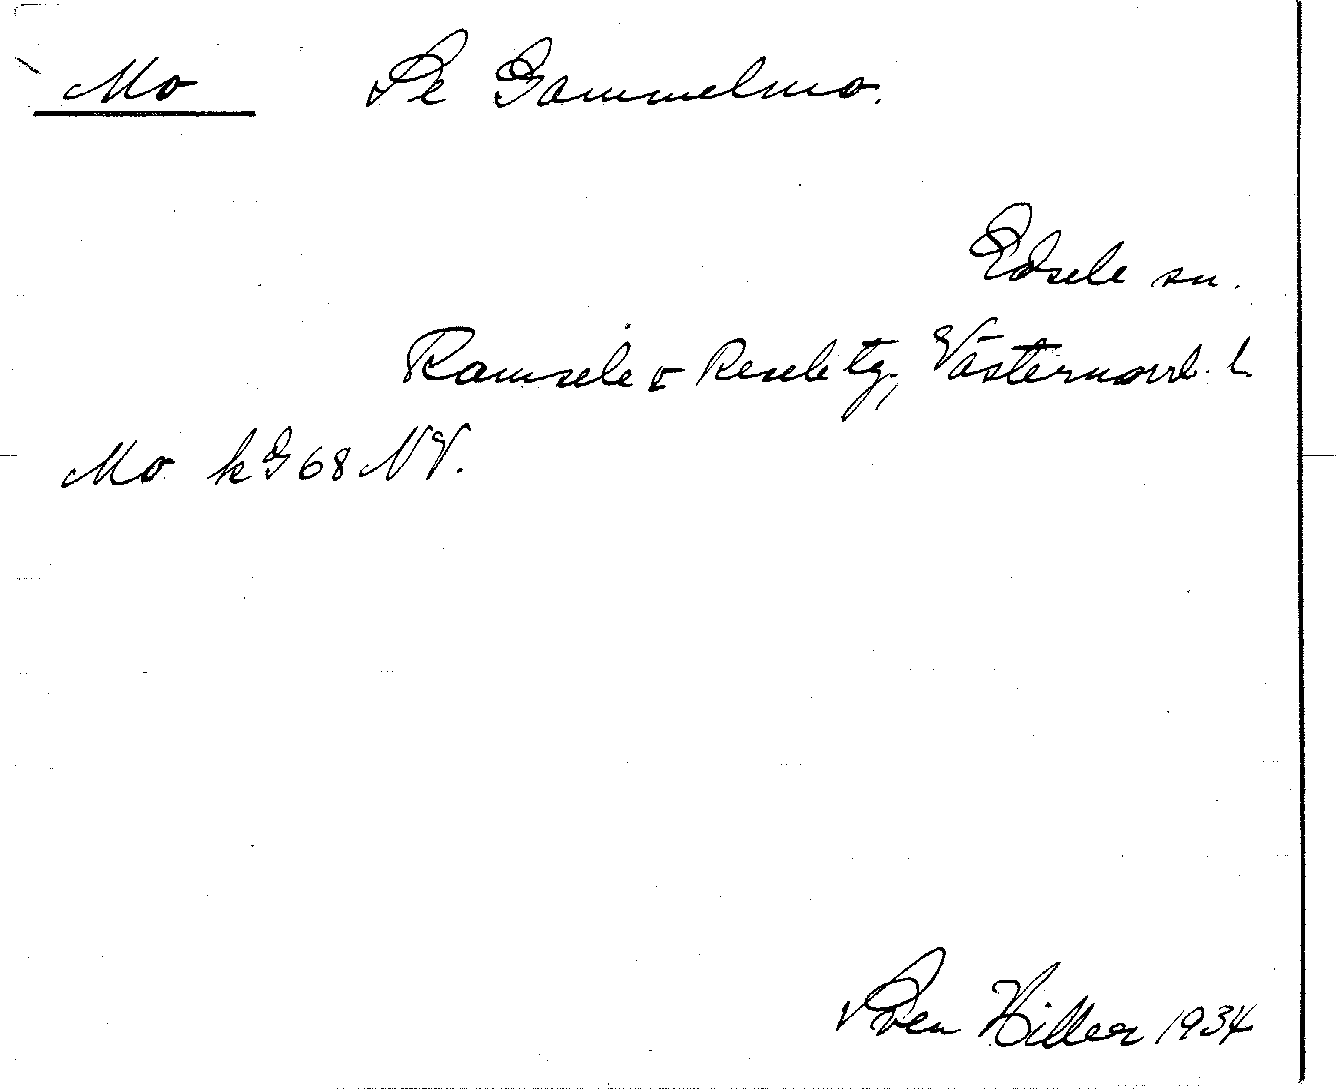 Mo Se Gammelmo.
Edsele sn.
Ramsele o Resele tg, Västernorrl. l.
Mo kG 68 NV.
Sven Hiller 1934